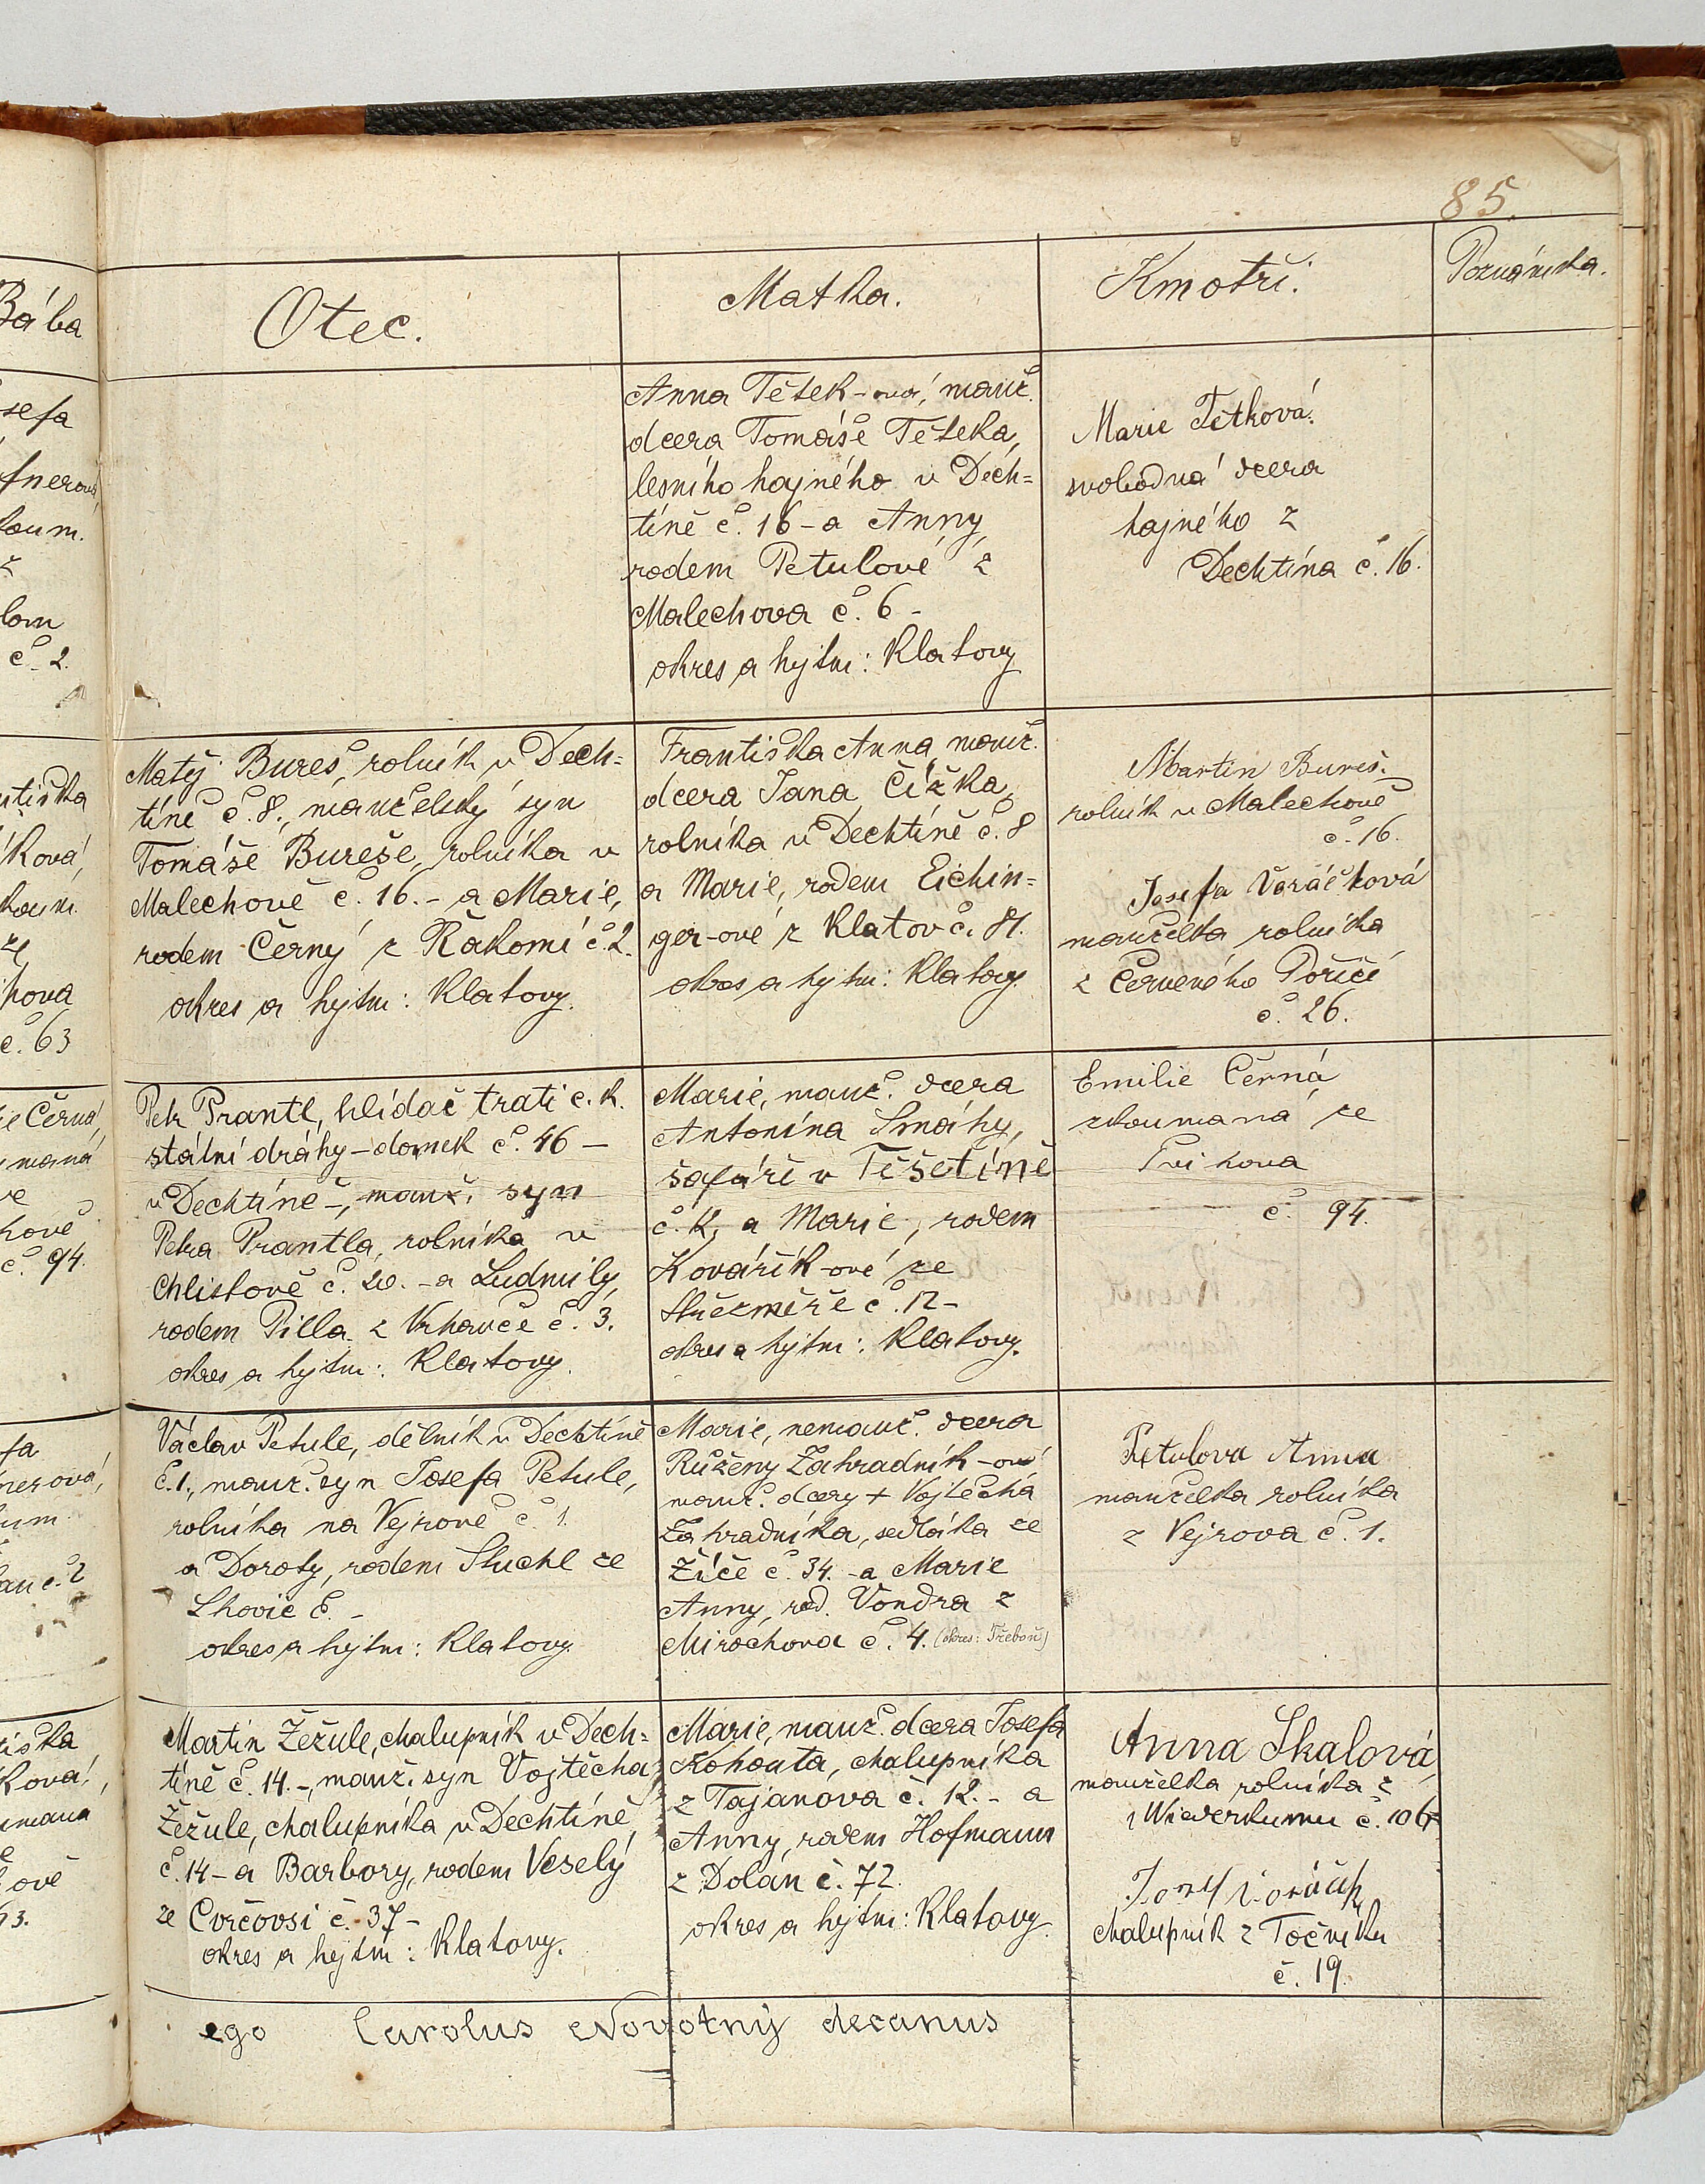 85.
Bába
Otec.
Matka.
Kmotři.
Poznámka.
Anna Tětek-ová, manž.
dcera Tomáše Těteka,
lesního hajného v Dech=
tíně č. 16 - a Anny,
rodem Petulové z
Malechova č. 6 -
okres a hejtm: Klatovy
Marie Tetková.
svobodná dcera
hajného z
Dechtína č. 16.
Matěj Bureš, rolník v Dech=
tíně č. 8., manželský syn
Tomáše Bureše, rolníka v
Malechově č. 16. - a Marie,
rodem Černý z Řakomi č. 2.
okres a hejtm: Klatovy.
Františka Anna, manž.
dcera Jana Čížka,
rolníka v Dechtíně č. 8
a Marie, rodem Eichin=
ger-ové z Klatov č. 81.
okres a hejtm: Klatovy.
Martin Bureš.
rolník v Malechově
č. 16.
Josefa Voráčková
manželka rolníka
z Červeného Poříčí
č. 26.
Petr Prantl, hlídač trati c. k.
státní dráhy - domek č. 46 -
v Dechtíně -, manž. syn
Petra Prantla, rolníka v
Chlistově č. 20. - a Ludmily,
rodem Pilla z Vrhavče č. 3.
okres a hejtm: Klatovy.
Marie, manž. dcera
Antonína Smáhy,
šafáře v Těšetíně
č. 12, a Marie, rodem
Kovářík-ové ze
Střezměře č. 12 -
okres a hejtm: Klatovy.
Emilie Černá
zkoumaná ze
Švihova
č. 94.
Václav Petule, dělník v Dechtíně
č. 1., manž. syn Josefa Petule,
rolníka na Vejrově č. 1.
a Doroty, rodem Stuchl ze
Lhovic č. -
okres a hejtm: Klatovy.
Marie, nemanž. dcera
Růženy Zahradník-ové
manž. dcery + Vojtěcha
Zahradníka, sedláka ze
Žíče č. 34. - a Marie
Anny, rod. Vondra z
Mirochova č. 4. (okres: Třeboň)
Petulova Anna
manželka rolníka
z Vejrova č. 1.
Martin Žežule, chalupník v Dech=
tíně č. 14. -, manž. syn Vojtěcha
Žežule, chalupníka v Dechtíně
č. 14 - a Barbory, rodem Veselý
ze Cvrčovsi č. 37 -
okres a hejtm: Klatovy.
Marie, manž. dcera Josefa
Kohouta, chalupníka
z Tajanova č. 12. - a
Anny, rodem Hofmann
z Dolan č. 72.
okres a hejtm: Klatovy.
Anna Skalová
manželka rolníka z
č. 106
Josef
chalupník z Točníku
č. 19.
ego Carolus Novotný decanus